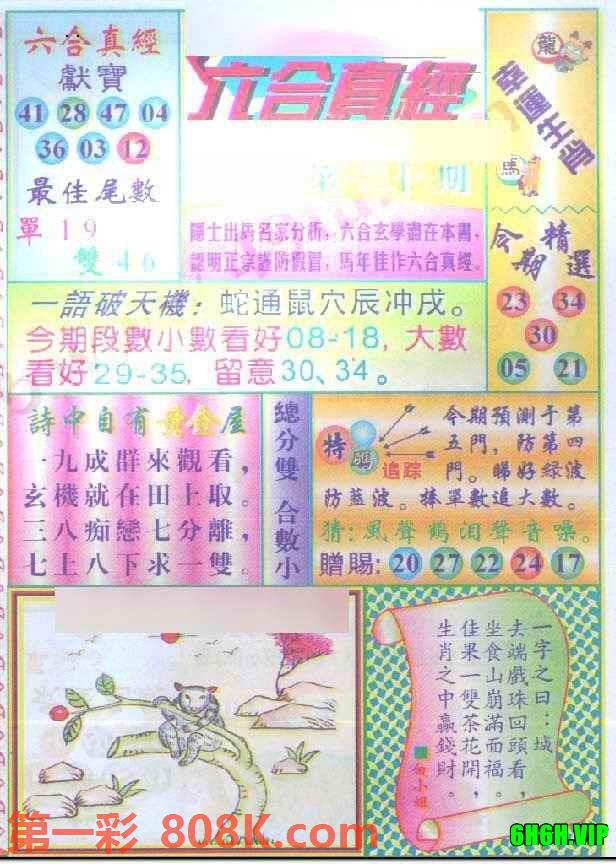 六合真經
獻寶
41 28 47 04
36 03 12
最佳尾數
單 1 9
雙 4 6
六合真經
期
隱士出馬名家分析，六合玄學盡在本書，
認明正宗謹防假冒，馬年佳作六合真經。
龍
幸運生肖
馬
今期精選
23 34
30
05 21
一語破天機：蛇通鼠穴辰冲戌。
今期段數小數看好08-18，大數
看好29-35，留意30、34。
詩中自有黃金屋
一九成群來觀看，
玄機就在田上取。
三八痴戀七分離，
七上八下求一雙。
總分雙 合數小
特碼
追踪
今期預測于第
五門，防第四
門。睇好綠波
防藍波。捧單數追大數。
猜：風聲鶴泪聲音嗓。
贈賜：20 27 22 24 17
一字之曰：城
去端戲珠回頭看，
坐食山崩滿而福。
佳果一雙茶花開，
生肖之中贏錢財。
小姐
第一彩 808K.com
6H6H.VIP